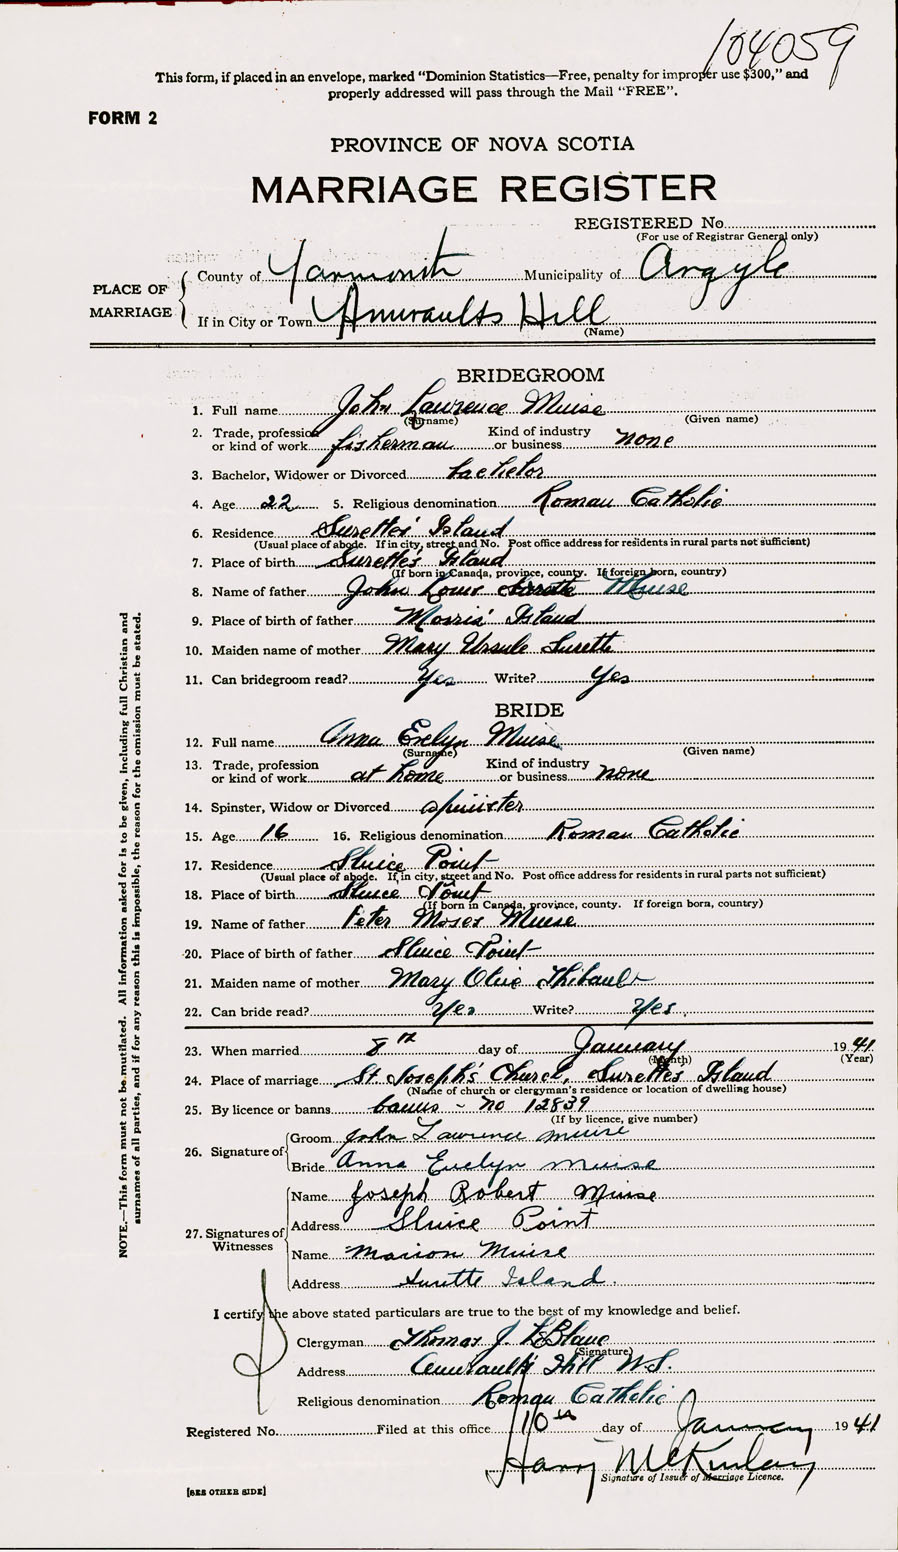 104059
This form, if placed in an envelope, marked "Dominion Statistics—Free, penalty for improper use $300," and
properly addressed will pass through the Mail "FREE".
FORM 2
PROVINCE OF NOVA SCOTIA
MARRIAGE REGISTER
REGISTERED No.
(For use of Registrar General only)
PLACE OF MARRIAGE
County of Yarmouth Municipality of Argyle
If in City or Town Amiraults Hill
(Name)
BRIDEGROOM
1. Full name John Lawrence Muise
(Surname) (Given name)
2. Trade, profession or kind of work fisherman Kind of industry or business none
3. Bachelor, Widower or Divorced bachelor
4. Age 22 5. Religious denomination Roman Catholic
6. Residence Surettes' Island
(Usual place of abode. If in city, street and No. Post office address for residents in rural parts not sufficient)
7. Place of birth Surette's Island
(If born in Canada, province, county. If foreign born, country)
8. Name of father John Louis Surette Muise
9. Place of birth of father Morris' Island
10. Maiden name of mother Mary Ursule Surette
11. Can bridegroom read? Yes Write? Yes
BRIDE
12. Full name Anna Evelyn Muise
(Surname) (Given name)
13. Trade, profession or kind of work at home Kind of industry or business none
14. Spinster, Widow or Divorced spinster
15. Age 16 16. Religious denomination Roman Catholic
17. Residence Sluice Point
(Usual place of abode. If in city, street and No. Post office address for residents in rural parts not sufficient)
18. Place of birth Sluice Point
(If born in Canada, province, county. If foreign born, country)
19. Name of father Peter Moses Muise
20. Place of birth of father Sluice Point
21. Maiden name of mother Mary Olive Thibault
22. Can bride read? Yes Write? Yes.
23. When married 8th day of January 1941
(Month) (Year)
24. Place of marriage St Joseph's Church, Surettes Island
(Name of church or clergyman's residence or location of dwelling house)
25. By licence or banns banns - no 12839
(If by licence, give number)
26. Signature of
Groom John Lawrence muise
Bride Anna Evelyn muise
27. Signatures of Witnesses
Name Joseph Robert Muise
Address Sluice Point
Name Marion Muise
Address Surette Island.
I certify the above stated particulars are true to the best of my knowledge and belief.
Clergyman Thomas J. LeBlanc
(Signature)
Address Amiraults Hill N.S.
Religious denomination Roman Catholic
Registered No. Filed at this office 10th day of January 1941
Harry McKinlay
Signature of Issuer of Marriage Licence.
[SEE OTHER SIDE]
NOTE.—This form must not be mutilated. All information asked for is to be given, including full Christian and
surnames of all parties, and if for any reason this is impossible, the reason for the omission must be stated.